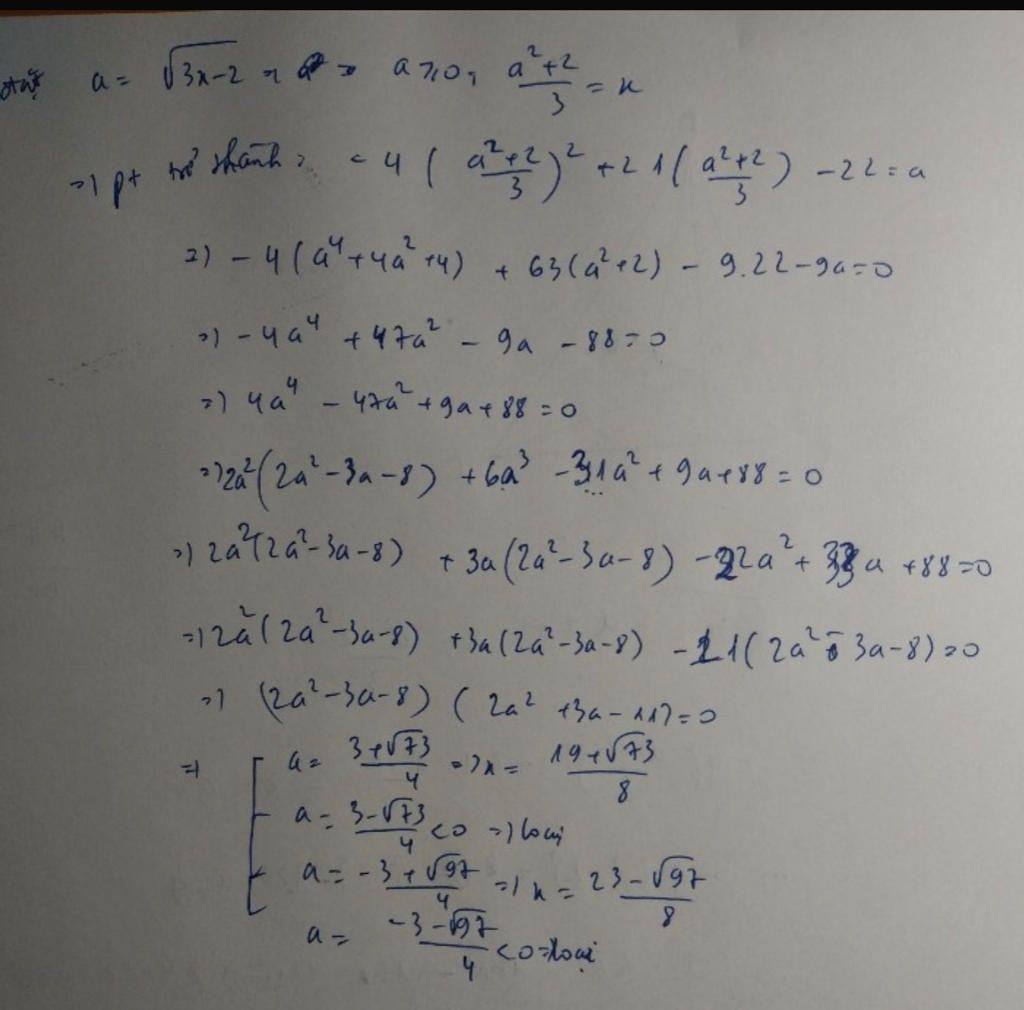 đặt a = √(3x-2) => a ≥ 0, (a²+2)/3 = x
=> pt trở thành: -4((a²+2)/3)² + 21((a²+2)/3) - 22 = a
=> -4(a⁴+4a²+4) + 63(a²+2) - 9.22 - 9a = 0
=> -4a⁴ + 47a² - 9a - 88 = 0
=> 4a⁴ - 47a² + 9a + 88 = 0
=> 2a²(2a²-3a-8) + 6a³ - 31a² + 9a + 88 = 0
=> 2a²(2a²-3a-8) + 3a(2a²-3a-8) - 22a² + 33a + 88 = 0
=> 2a²(2a²-3a-8) + 3a(2a²-3a-8) - 11(2a²-3a-8) = 0
=> (2a²-3a-8)(2a²+3a-11) = 0
=> [ a = (3+√73)/4 => x = (19+√73)/8
a = (3-√73)/4 < 0 => loại
a = (-3+√97)/4 => x = (23-√97)/8
a = (-3-√97)/4 < 0 => loại